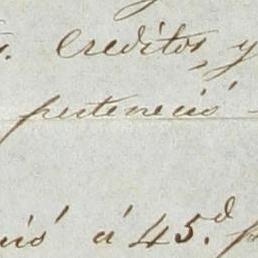 Creditos, y
perteneció
ció á 45.d